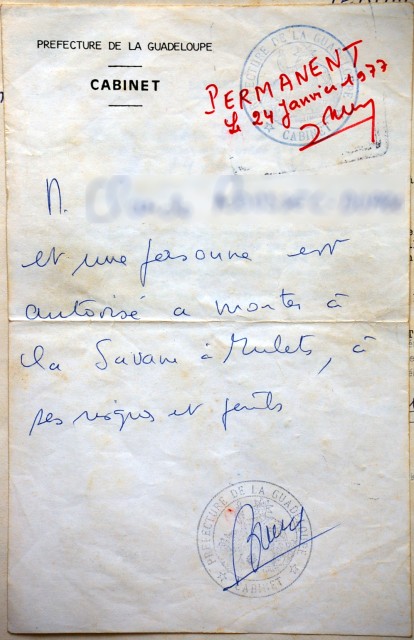 PREFECTURE DE LA GUADELOUPE
CABINET
PERMANENT
Le 24 Janvier 1977
PREFECTURE DE LA GUADELOUPE
CABINET
M.
et une personne est
autorisé a monter à
la Savane à Mulets, à
ses risques et périls
PREFECTURE DE LA GUADELOUPE
CABINET